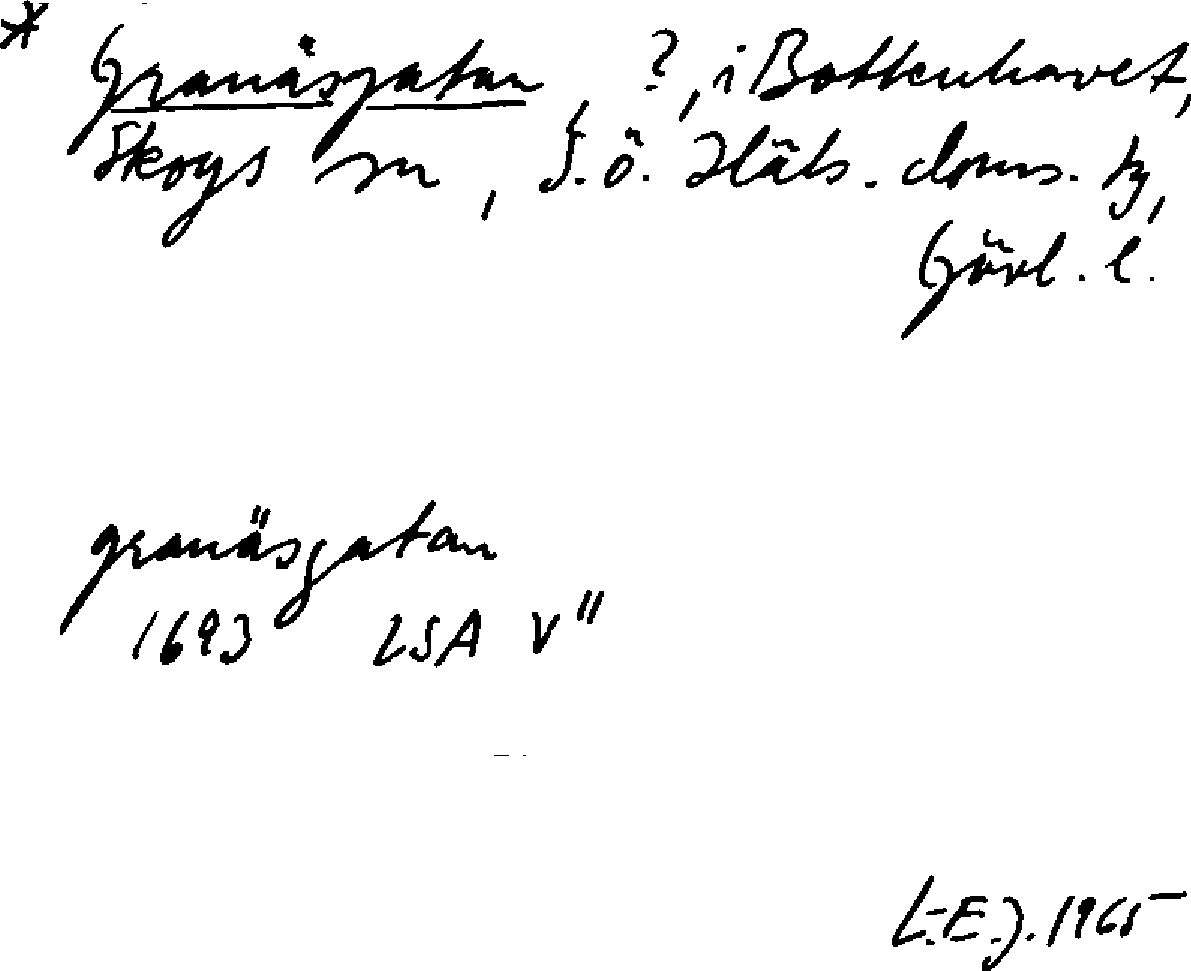 * Granåsgatan, ?, i Bottenhavet,
Skogs sn, S.ö. Häls. doms. tg,
Gävl. l.
granäsgatan
1693 LSA V"
L.E.J. 1965